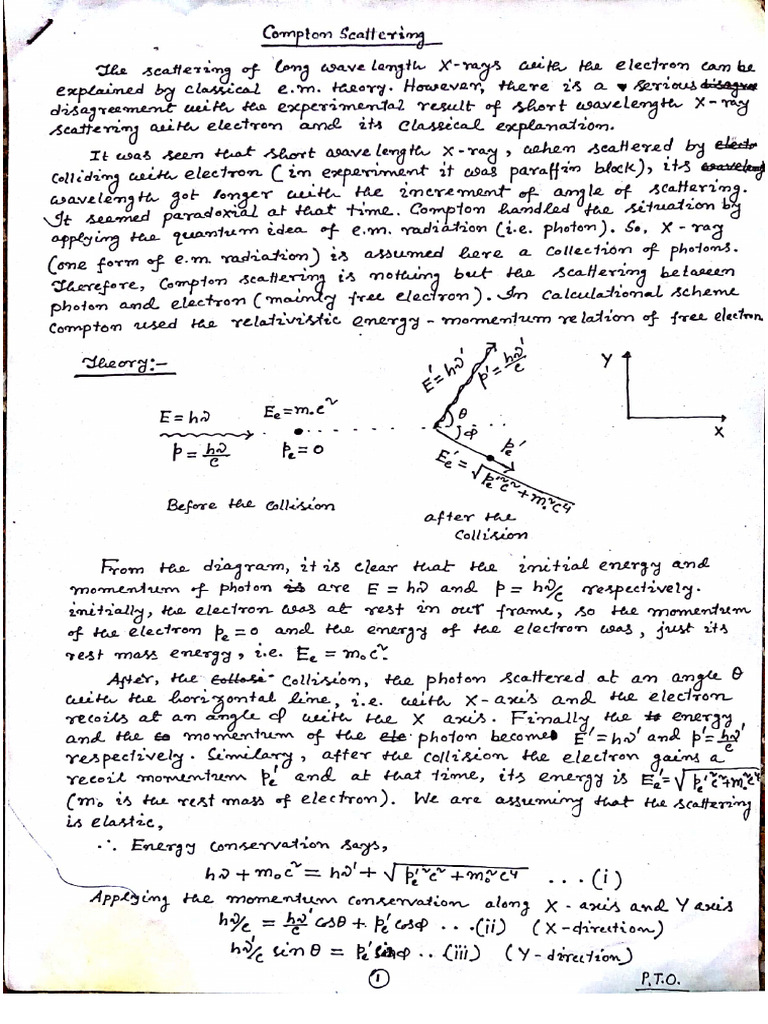 Compton Scattering
The scattering of long wave length X-rays with the electron can be
explained by classical e.m. theory. However, there is a serious disagree
disagreement with the experimental result of short wavelength X-ray
scattering with electron and its classical explanation.
It was seen that short wave length X-ray, when scattered by electr
colliding with electron (in experiment it was paraffin block), its waveleng
wavelength got longer with the increment of angle of scattering.
It seemed paradoxial at that time. Compton handled the situation by
applying the quantum idea of e.m. radiation (i.e. photon). So, X-ray
(one form of e.m. radiation) is assumed here a collection of photons.
Therefore, Compton scattering is nothing but the scattering between
photon and electron (mainly free electron). In calculational scheme
Compton used the relativistic energy-momentum relation of free electron
Theory:-
E = hν
p = hν/c
Ee = m₀c²
pe = 0
Before the collision
E' = hν'
p' = hν'/c
θ
φ
pe'
Ee' = √(pe'²c² + m₀²c⁴)
after the
collision
Y
X
From the diagram, it is clear that the initial energy and
momentum of photon is are E = hν and p = hν/c respectively.
initially, the electron was at rest in our frame, so the momentum
of the electron pe = 0 and the energy of the electron was, just its
rest mass energy, i.e. Ee = m₀c².
After, the collision, the photon scattered at an angle θ
with the horizontal line, i.e. with X-axis and the electron
recoils at an angle φ with the X axis. Finally the energy
and the momentum of the ele photon becomes E' = hν' and p' = hν'/c
respectively. Similary, after the collision the electron gains a
recoil momentum pe' and at that time, its energy is Ee' = √(pe'²c² + m₀²c⁴)
(m₀ is the rest mass of electron). We are assuming that the scattering
is elastic,
∴ Energy conservation says,
hν + m₀c² = hν' + √(pe'²c² + m₀²c⁴) ... (i)
Applying the momentum conservation along X-axis and Y axis
hν/c = hν'/c cosθ + pe' cosφ ... (ii) (X-direction)
hν'/c sinθ = pe' sinφ .. (iii) (Y-direction)
1
P.T.O.